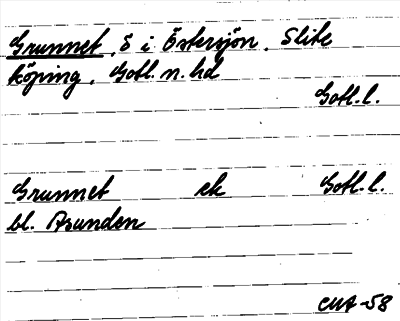 Grunnet, ö i Östersjön, Slite
köping, Gotl. n. hd
Gotl. l.
Grunnet ek Gotl. l.
bl. Asunden
CMA -58